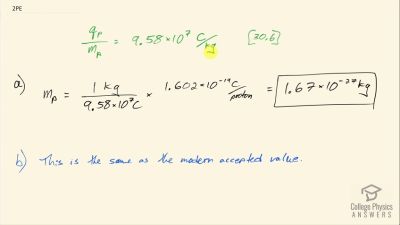 2PE
qₚ/mₚ = 9.58×10⁷ C/kg [30.6]
a) mₚ = 1 kg/9.58×10⁷C × 1.602×10⁻¹⁹C/proton = 1.67×10⁻²⁷kg
b) This is the same as the modern accepted value.
College Physics
ANSWERS